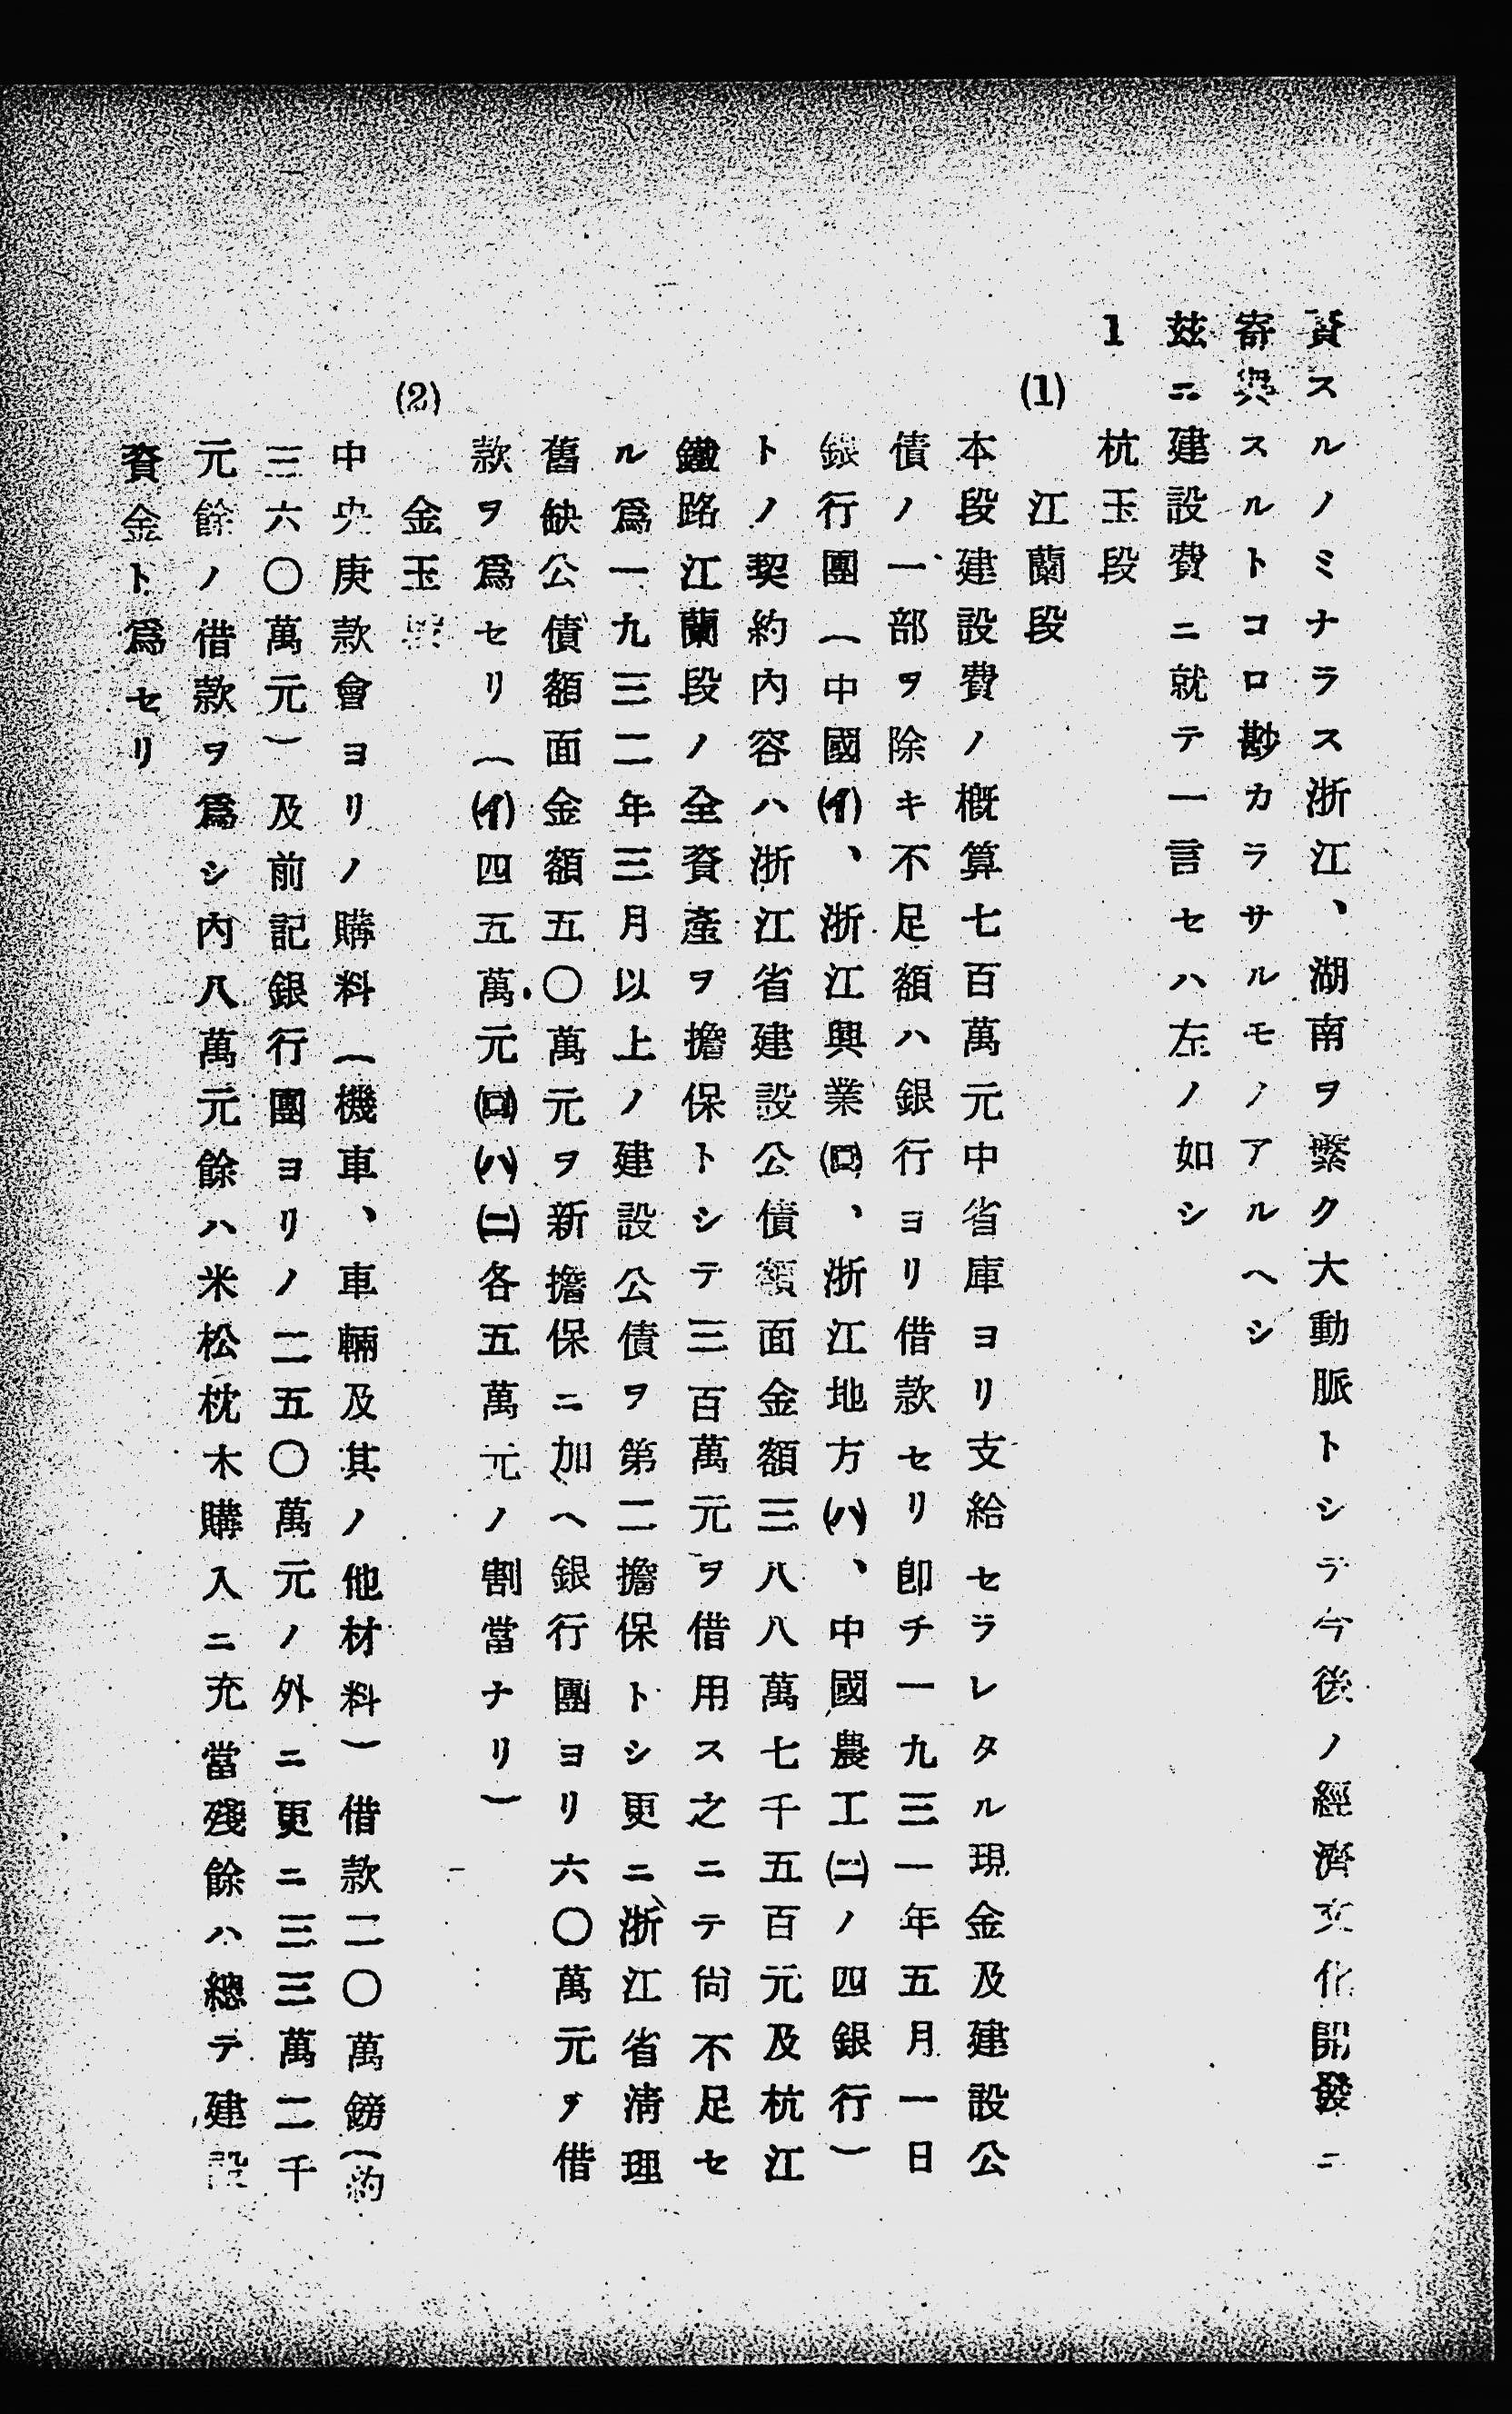 資スルノミナラス浙江、湖南ヲ繋ク大動脈トシテ今後ノ經濟文化開發ニ
寄與スルトコロ尠カラサルモノアルヘシ
茲ニ建設費ニ就テ一言セハ左ノ如シ
1 杭玉段
(1) 江蘭段
本段建設費ノ概算七百萬元中省庫ヨリ支給セラレタル現金及建設公
債ノ一部ヲ除キ不足額ハ銀行ヨリ借款セリ卽チ一九三一年五月一日
銀行團(中國(イ)、浙江興業(ロ)、浙江地方(ハ)、中國農工(ニ)ノ四銀行)
トノ契約內容ハ浙江省建設公債額面金額三八八萬七千五百元及杭江
鐵路江蘭段ノ全資產ヲ擔保トシテ三百萬元ヲ借用ス之ニテ尙不足セ
ル爲一九三二年三月以上ノ建設公債ヲ第二擔保トシ更ニ浙江省淸理
舊缺公債額面金額五〇萬元ヲ新擔保ニ加ヘ銀行團ヨリ六〇萬元ヲ借
款ヲ爲セリ((イ)四五萬元(ロ)(ハ)(ニ)各五萬元ノ割當ナリ)
(2) 金玉段
中央庚款會ヨリノ購料(機車、車輛及其ノ他材料)借款二〇萬鎊(約
三六〇萬元)及前記銀行團ヨリノ二五〇萬元ノ外ニ更ニ三三萬二千
元餘ノ借款ヲ爲シ內八萬元餘ハ米松枕木購入ニ充當殘餘ハ總テ建設
資金ト爲セリ